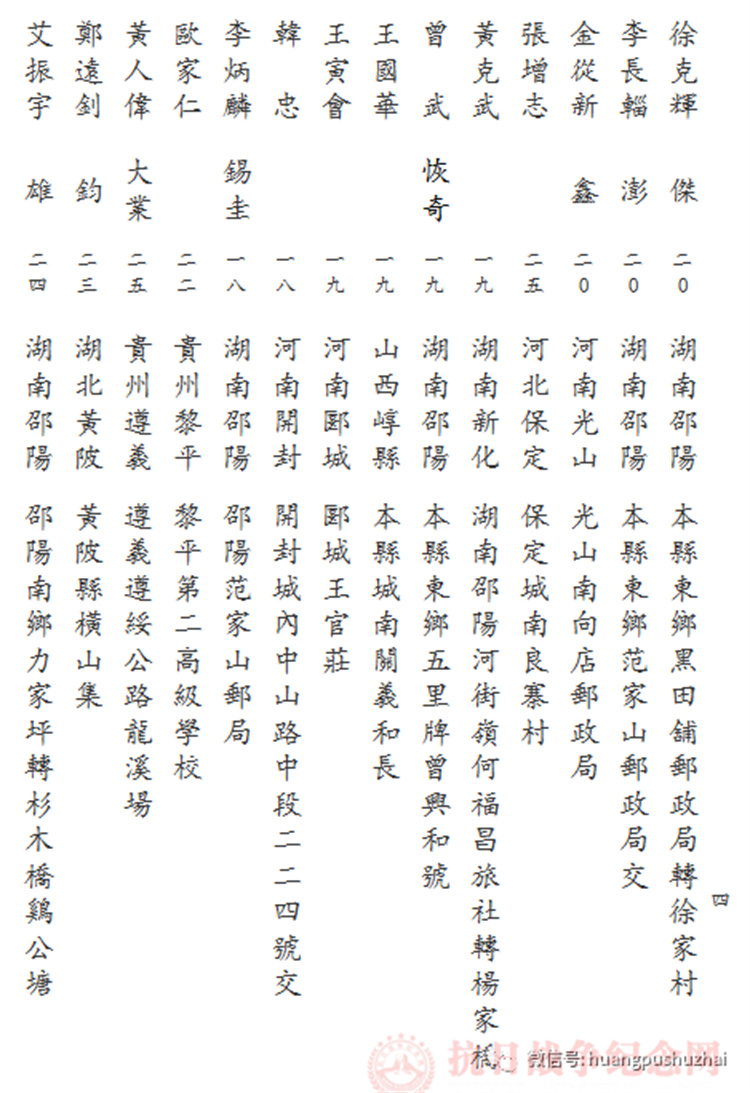 徐克輝 傑 二0 湖南邵陽 本縣東鄉黑田舖郵政局轉徐家村
李長輜 澎 二0 湖南邵陽 本縣東鄉范家山郵政局交
金從新 鑫 二0 河南光山 光山南向店郵政局
張增志 二五 河北保定 保定城南良寨村
黃克武 一九 湖南新化 湖南邵陽河街嶺何福昌旅社轉楊家
曾武 恢奇 一九 湖南邵陽 本縣東鄉五里牌曾興和號
王國華 一九 山西崞縣 本縣城南關義和長
王寅會 一九 河南郾城 郾城王官莊
韓忠 一八 河南開封 開封城內中山路中段二二四號交
李炳麟 錫圭 一八 湖南邵陽 邵陽范家山郵局
歐家仁 二二 貴州黎平 黎平第二高級學校
黃人偉 大業 二五 貴州遵義 遵義遵綏公路龍溪場
鄭遠釗 鈞 二三 湖北黃陂 黃陂縣橫山集
艾振宇 雄 二四 湖南邵陽 邵陽南鄉力家坪轉杉木橋鷄公塘
四
抗日战争纪念网
微信号: huangpushuzhai